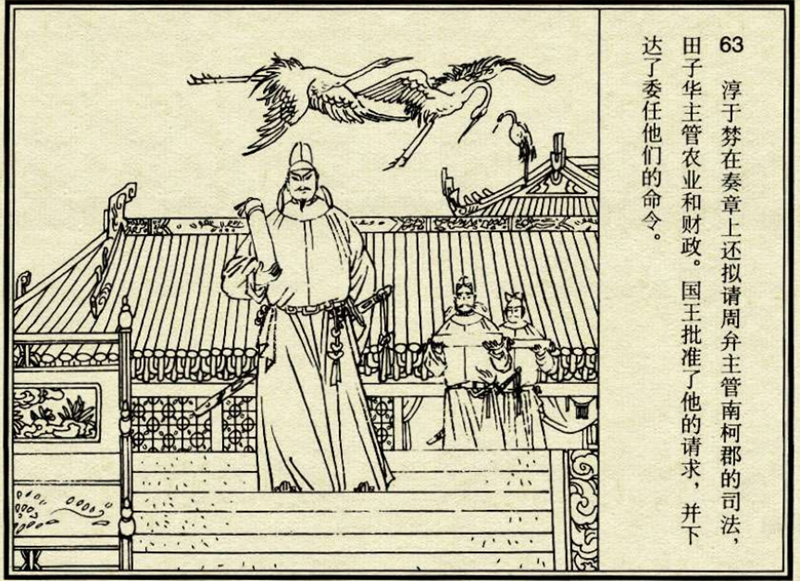 63 淳于棼在奏章上还拟请周弁主管南柯郡的司法，
田子华主管农业和财政。国王批准了他的请求，并下
达了委任他们的命令。